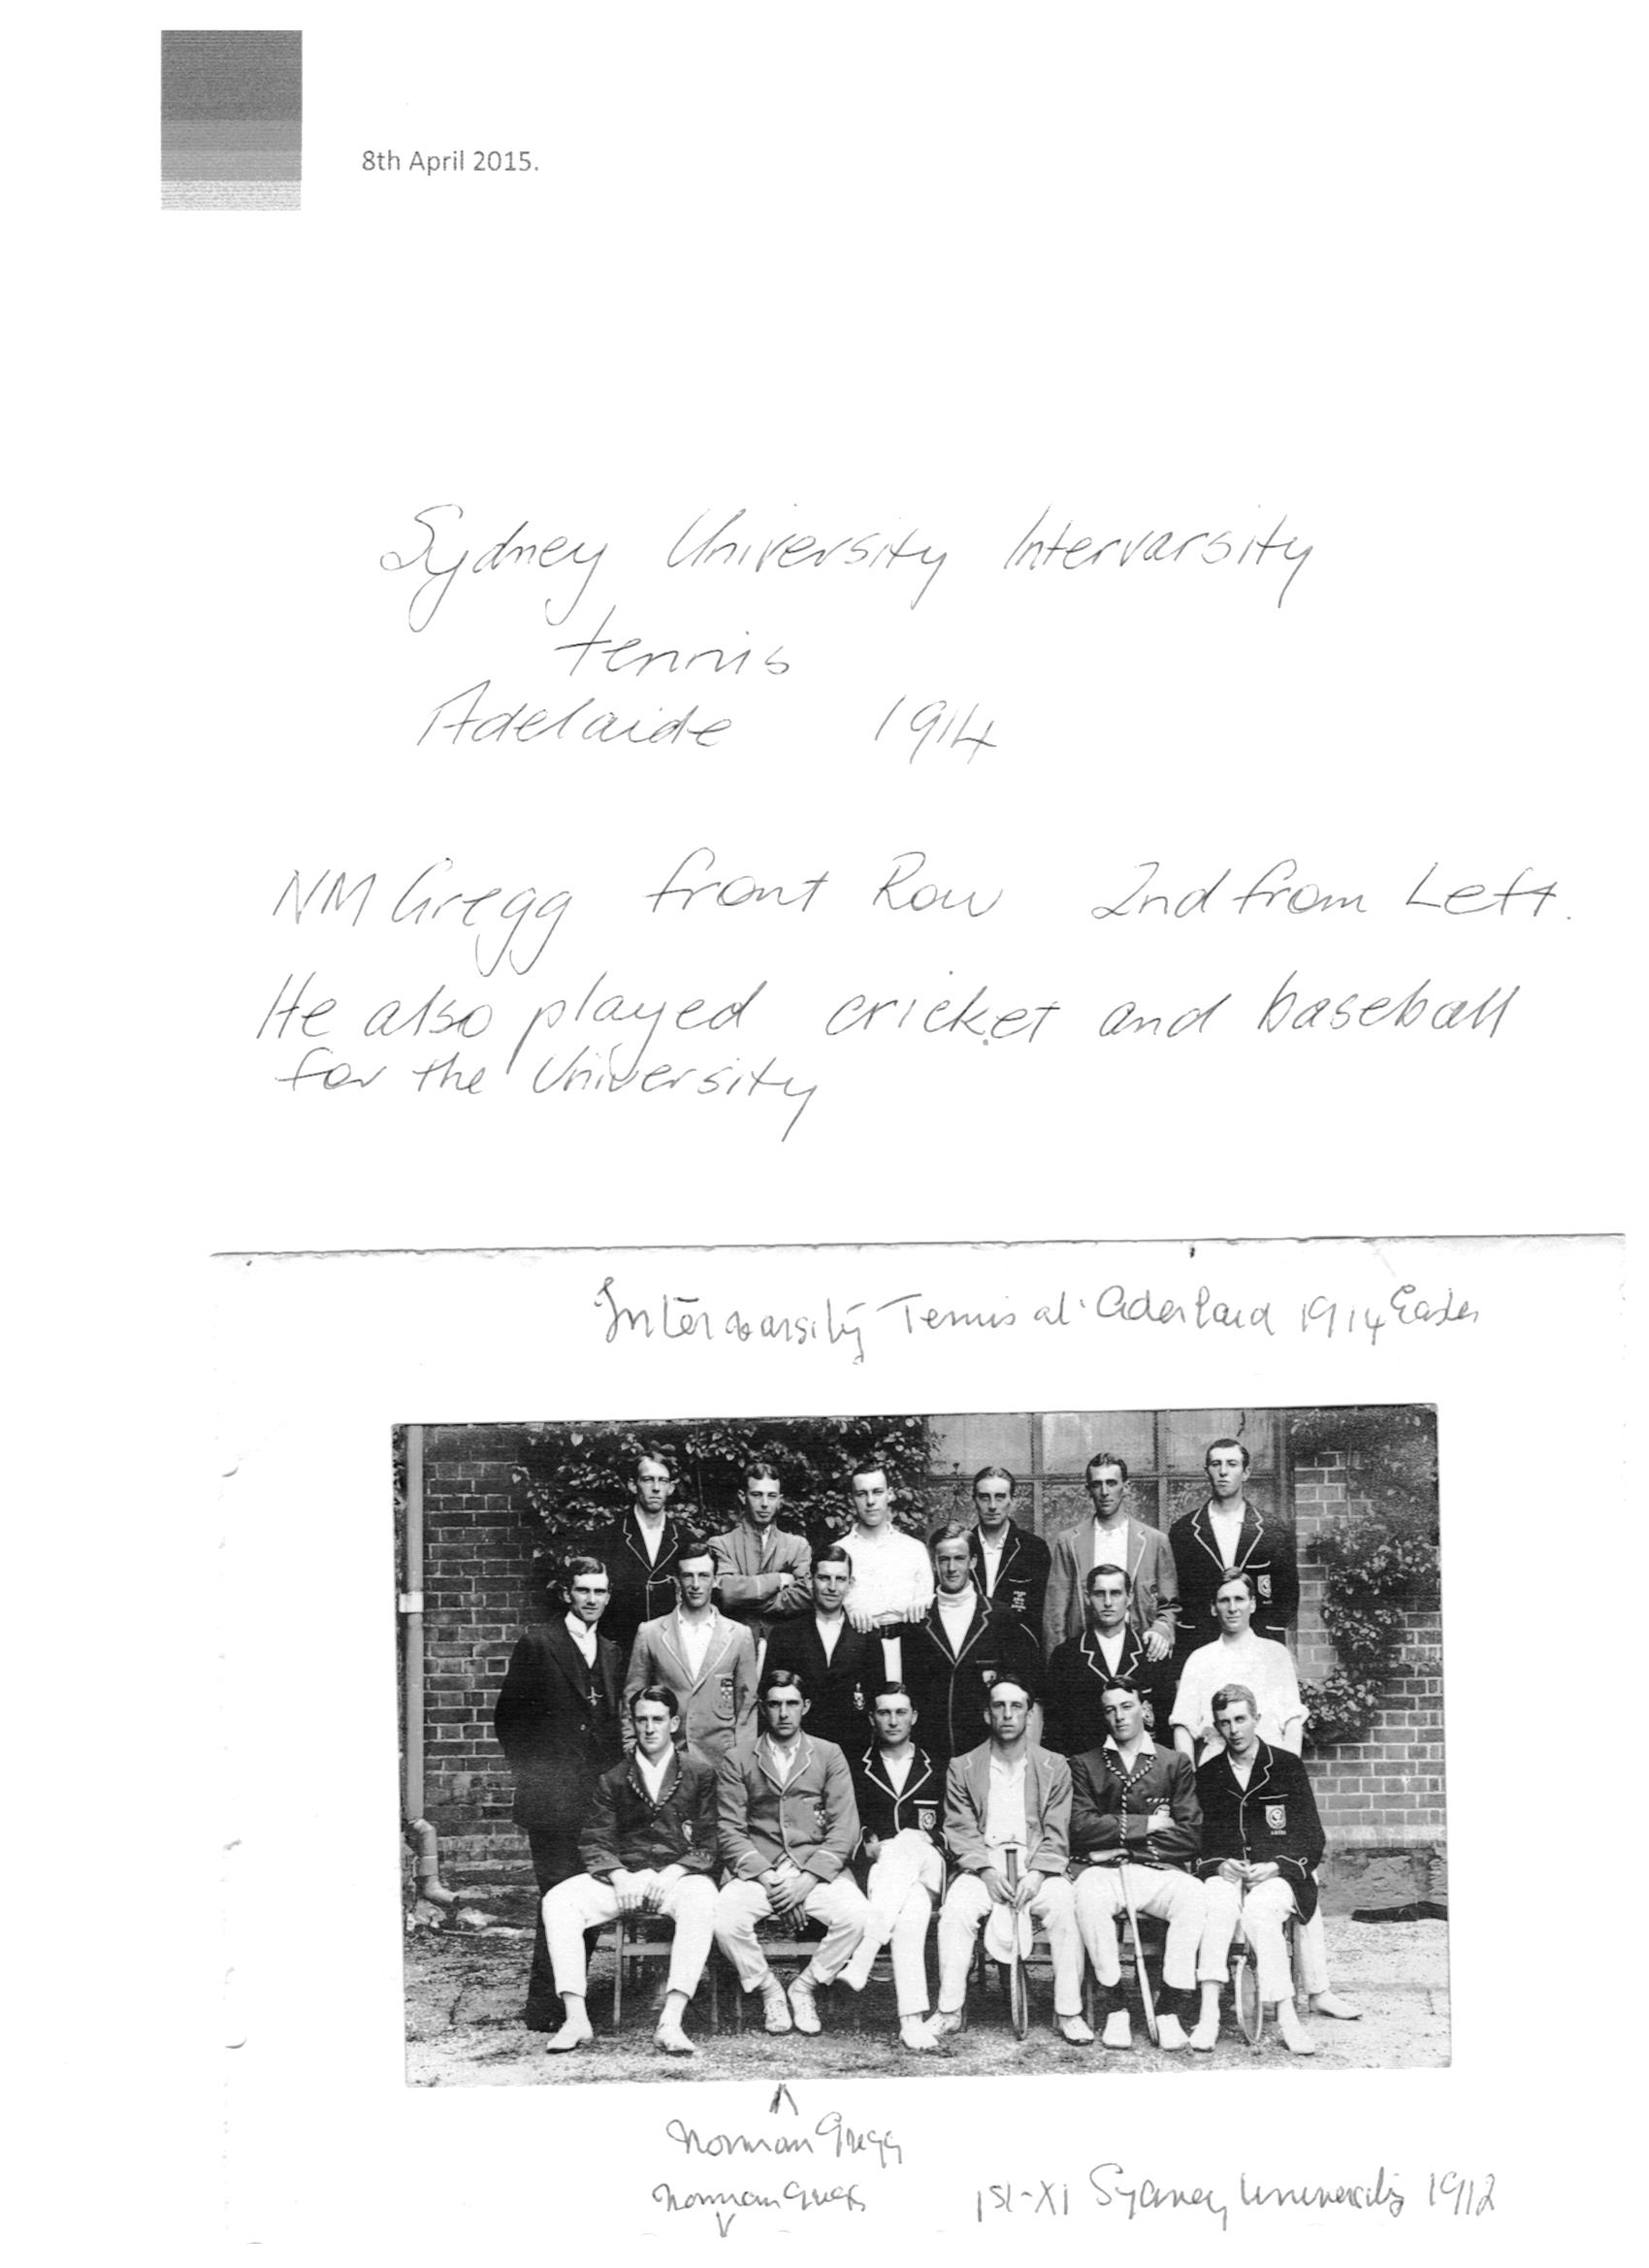 8th April 2015.
Sydney University Intervarsity
tennis
Adelaide 1914
NM Gregg front Row 2nd from Left.
He also played cricket and baseball
for the University
Intervarsity Tennis at Adelaid 1914 Easter
Norman Gregg
Norman Gregg 1st-XI Sydney University 1912